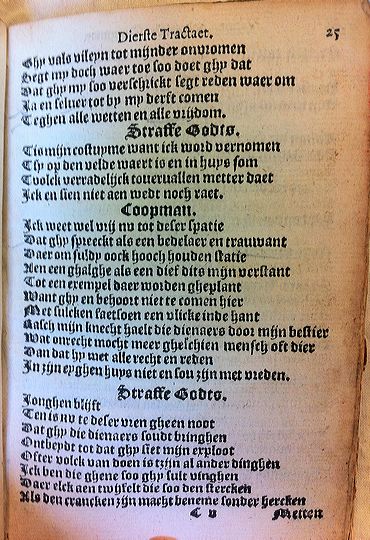 Dierste Tractaet. 25
Ghy vals vileyn tot mijnder onvromen
Segt my doch waer toe soo doet ghy dat
Dat ghy my soo verschrickt segt reden waer om
Ja en seluer tot by my derft comen
Teghen alle wetten en alle vrijdom.
Straffe Godts.
Tis mijn costuyme want ick word vernomen
Tsy op den velde waert is en in huys som
Tvolck verradelijck toeuervallen metter daet
Ick en sien niet aen wedt noch raet.
Coopman.
Ick weet wel wij nv tot deser spatie
Dat ghy spreeckt als een bedelaer en trauwant
Daer om suldy oock hooch houden statie
Aen een ghalghe als een dief dits mijn verstant
Tot een exempel daer worden gheplant
Want ghy en behoort niet te comen hier
Met sulcken faetsoen een vlicke inde hant
Rasch mijn knecht haelt die dienaers door mijn bestier
Wat onrecht mocht meer gheschien mensch oft dier
Dan dat hy wet alle recht en reden
In zijn eyghen huys niet en sou zijn met vreden.
Straffe Godts.
Jonghen blijft
Ten is nv te deser vren gheen noot
Dat ghy die dienaers soudt bringhen
Ontbeydt tot dat ghy siet mijn exploot
Ofter volck van doen is tzijn al ander dinghen
Ick ben die ghene soo ghy sult vinghen
Daer elck aen twijfelt die soo den stercken
Als den crancken zijn macht beneme sonder hercken
C v Metten